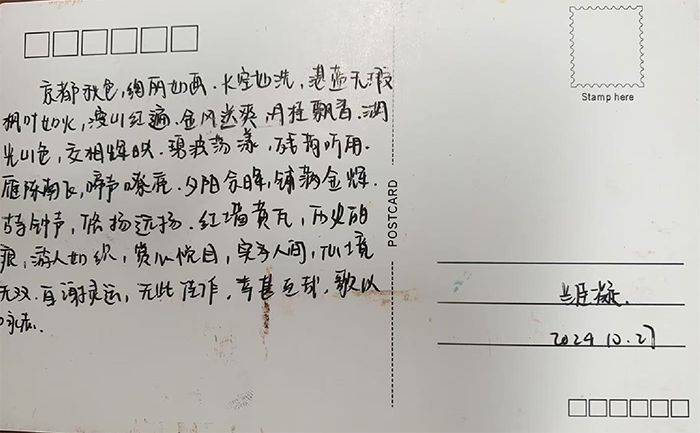 京都秋色，绚丽如画．长空如洗，湛蓝无瑕
枫叶如火，漫山红遍．金风送爽，丹桂飘香．湖
光山色，交相辉映．碧波荡漾，残荷听雨．
雁阵南飞，啼声嘹唳．夕阳余晖，铺满金辉．
古寺钟声，悠扬远扬．红墙黄瓦，历史的
痕，游人如织，赏心悦目，实乃人间，仙境
无双．自谢灵运，无此佳作，幸甚至哉，歌以
咏志．
Stamp here
POSTCARD
2024.10.27